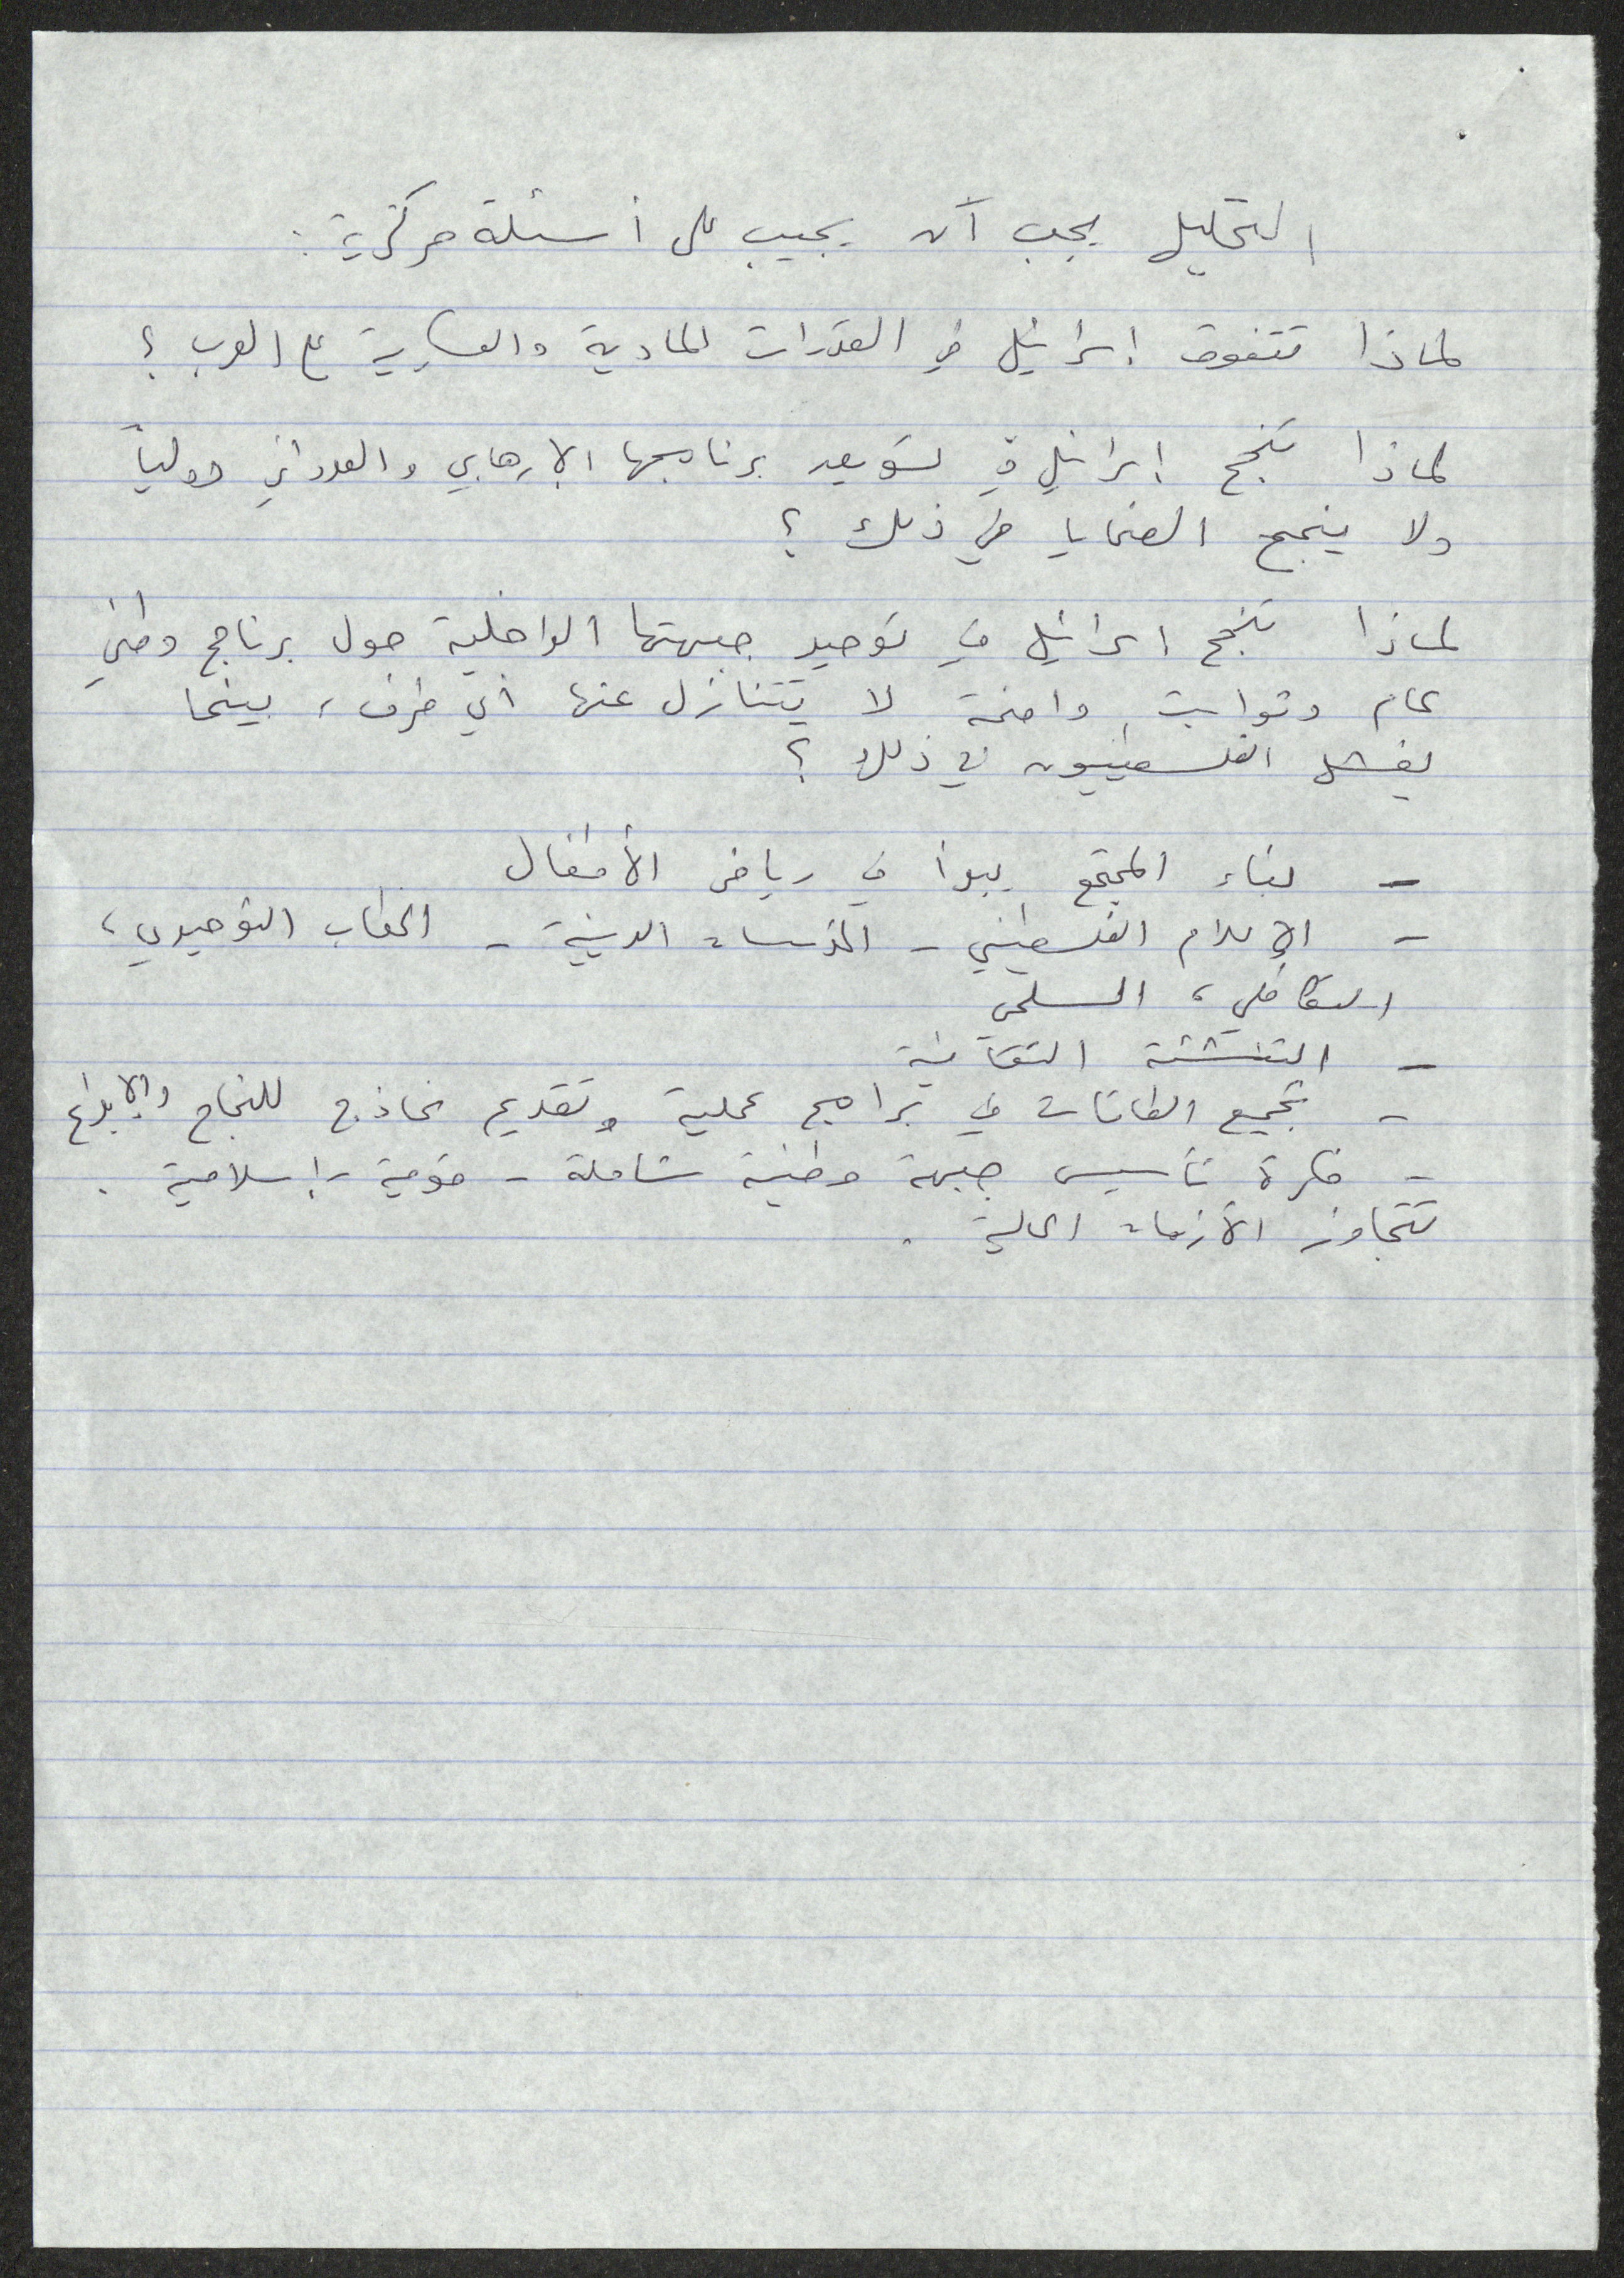 التحليل يجب أن يجيب على أسئلة مركزية :
لماذا تتفوق إسرائيل في القدرات المادية والعسكرية على العرب ؟
لماذا تنجح إسرائيل في تسويق برنامجها الإرهابي والعدواني دولياً
ولا ينجح الضحايا في ذلك ؟
لماذا تنجح اسرائيل في توحيد جبهتها الداخلية حول برنامج وطني
عام وثوابت واضحة لا يتنازل عنها أي طرف، بينما
يفشل الفلسطينيون في ذلك ؟
- بناء المجتمع يبدأ في رياض الأطفال
- الإعلام الفلسطيني - المؤسسات الدينية - الخطاب التوحيدي،
التكافلي، السلمي
- التنشئة الثقافية
- تجميع الطاقات في برامج عملية وتقديم نماذج للنجاح والإبداع
- فكرة تأسيس جبهة وطنية شاملة - قومية - إسلامية .
تتجاوز الأزمات الحالية .